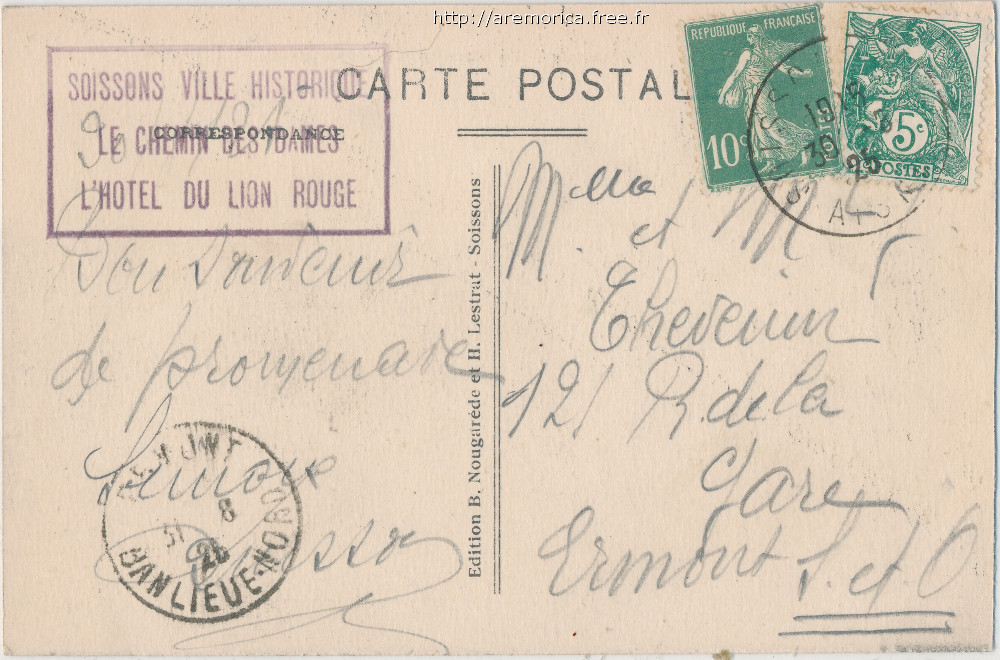 http://aremorica.free.fr
CARTE POSTAL
CORRESPONDANCE
SOISSONS VILLE HISTORIQUE
LE CHEMIN DES DAMES
L'HOTEL DU LION ROUGE
REPUBLIQUE FRANÇAISE
10c
5c
POSTES
19
30
AISNE
Bon Souvenir
de promenade
Simone
ERMONT
31 8
26
BANLIEUE-NORD
Edition B. Nougaréde et H. Lestrat - Soissons
Mlle
M. et M
Thevenin
121 R. de la
Gare
Ermont S. et O